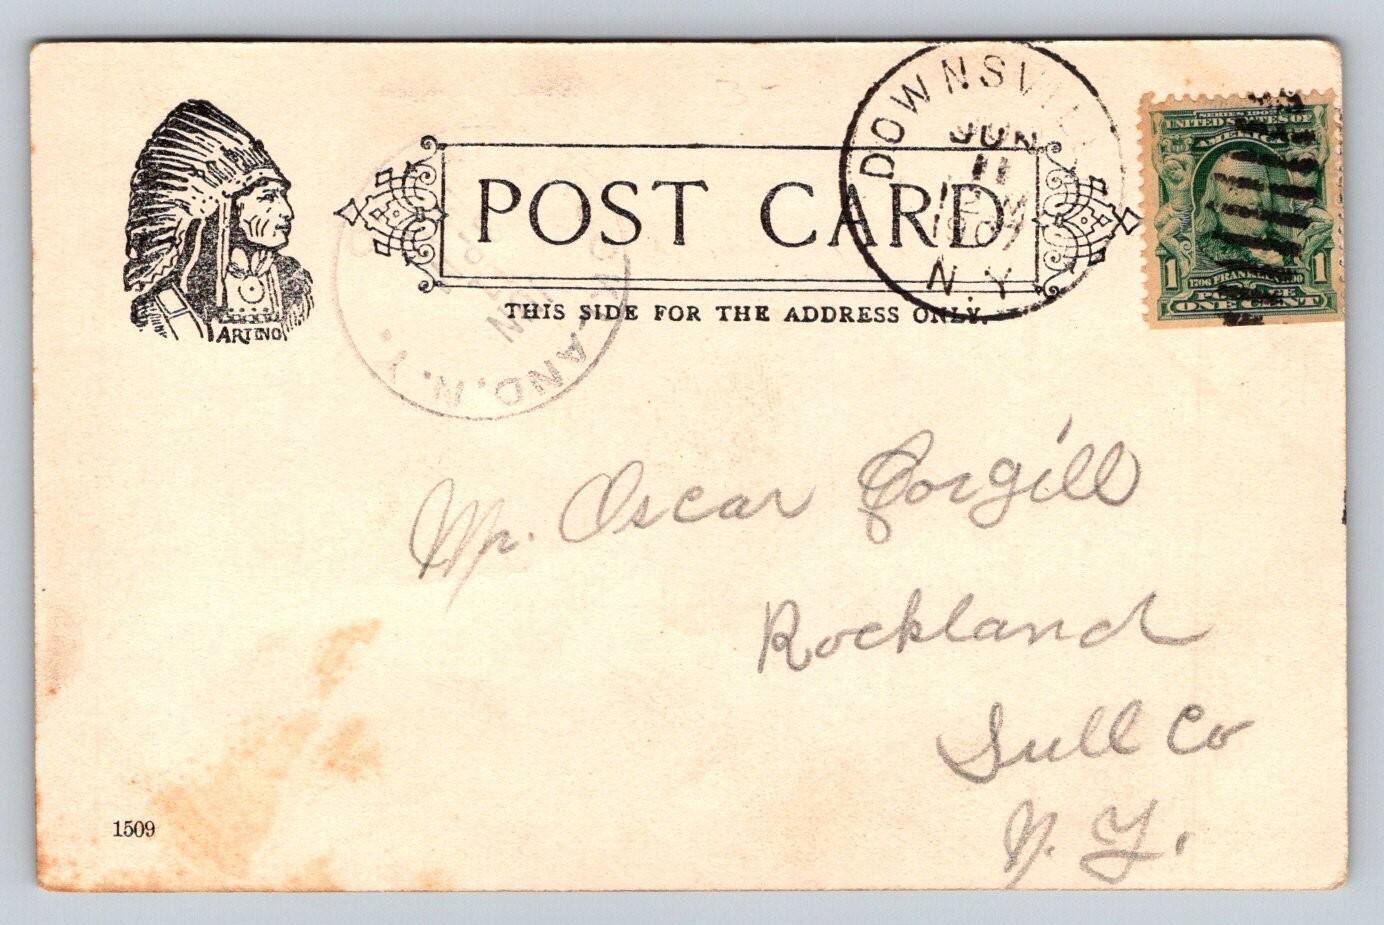 DOWNSVILL
JUN
11
12 M
1907
N.Y.
SERIES 1902
UNITED STATES OF
AMERICA
1706 FRANKLIN 1790
1 1
POSTAGE
ONE CENT
ARTINO
POST CARD
THIS SIDE FOR THE ADDRESS ONLY.
LAND, N.Y.
JUN
Mr. Oscar Corgill
Rockland
Sull Co
N. Y.
1509